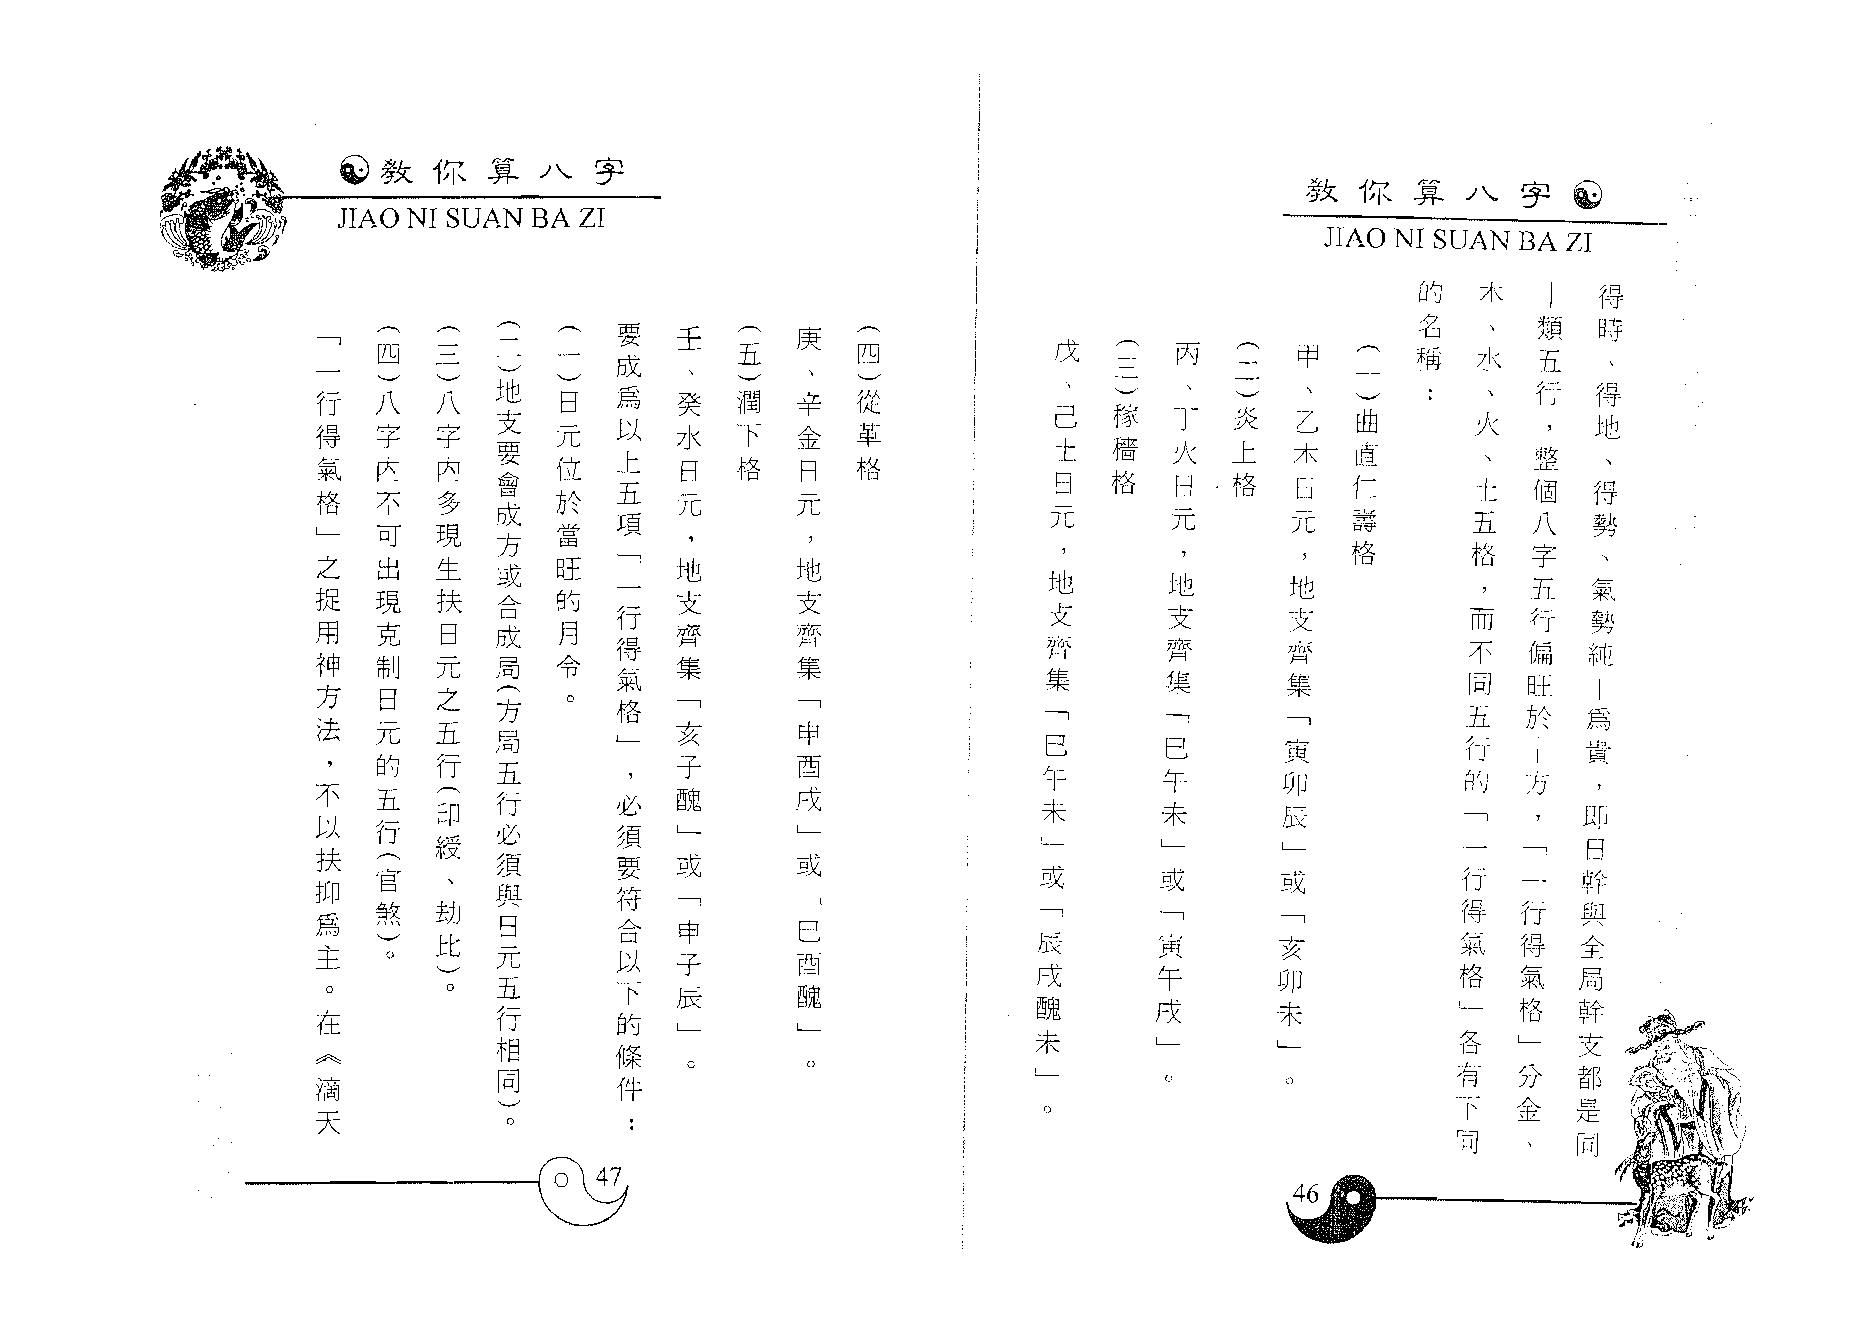 教你算八字
JIAO NI SUAN BA ZI
得時、得地、得勢、氣勢純—爲貴，即日幹與全局幹支都是同
—類五行，整個八字五行偏旺於—方，「一行得氣格」分金、
木、水、火、土五格，而不同五行的「一行得氣格」各有下同
的名稱：
(一)曲直仁壽格
甲、乙木日元，地支齊集「寅卯辰」或「亥卯未」。
(二)炎上格
丙、丁火日元，地支齊集「巳午未」或「寅午戌」。
(三)稼穡格
戊、己土日元，地支齊集「巳午未」或「辰戌醜未」。
46
教你算八字
JIAO NI SUAN BA ZI
(四)從革格
庚、辛金日元，地支齊集「申酉戌」或「巳酉醜」。
(五)潤下格
壬、癸水日元，地支齊集「亥子醜」或「申子辰」。
要成爲以上五項「一行得氣格」，必須要符合以下的條件：
(一)日元位於當旺的月令。
(二)地支要會成方或合成局(方局五行必須與日元五行相同)。
(三)八字內多現生扶日元之五行(印綬、劫比)。
(四)八字內不可出現克制日元的五行(官煞)。
「一行得氣格」之捉用神方法，不以扶抑爲主。在《滴天
47